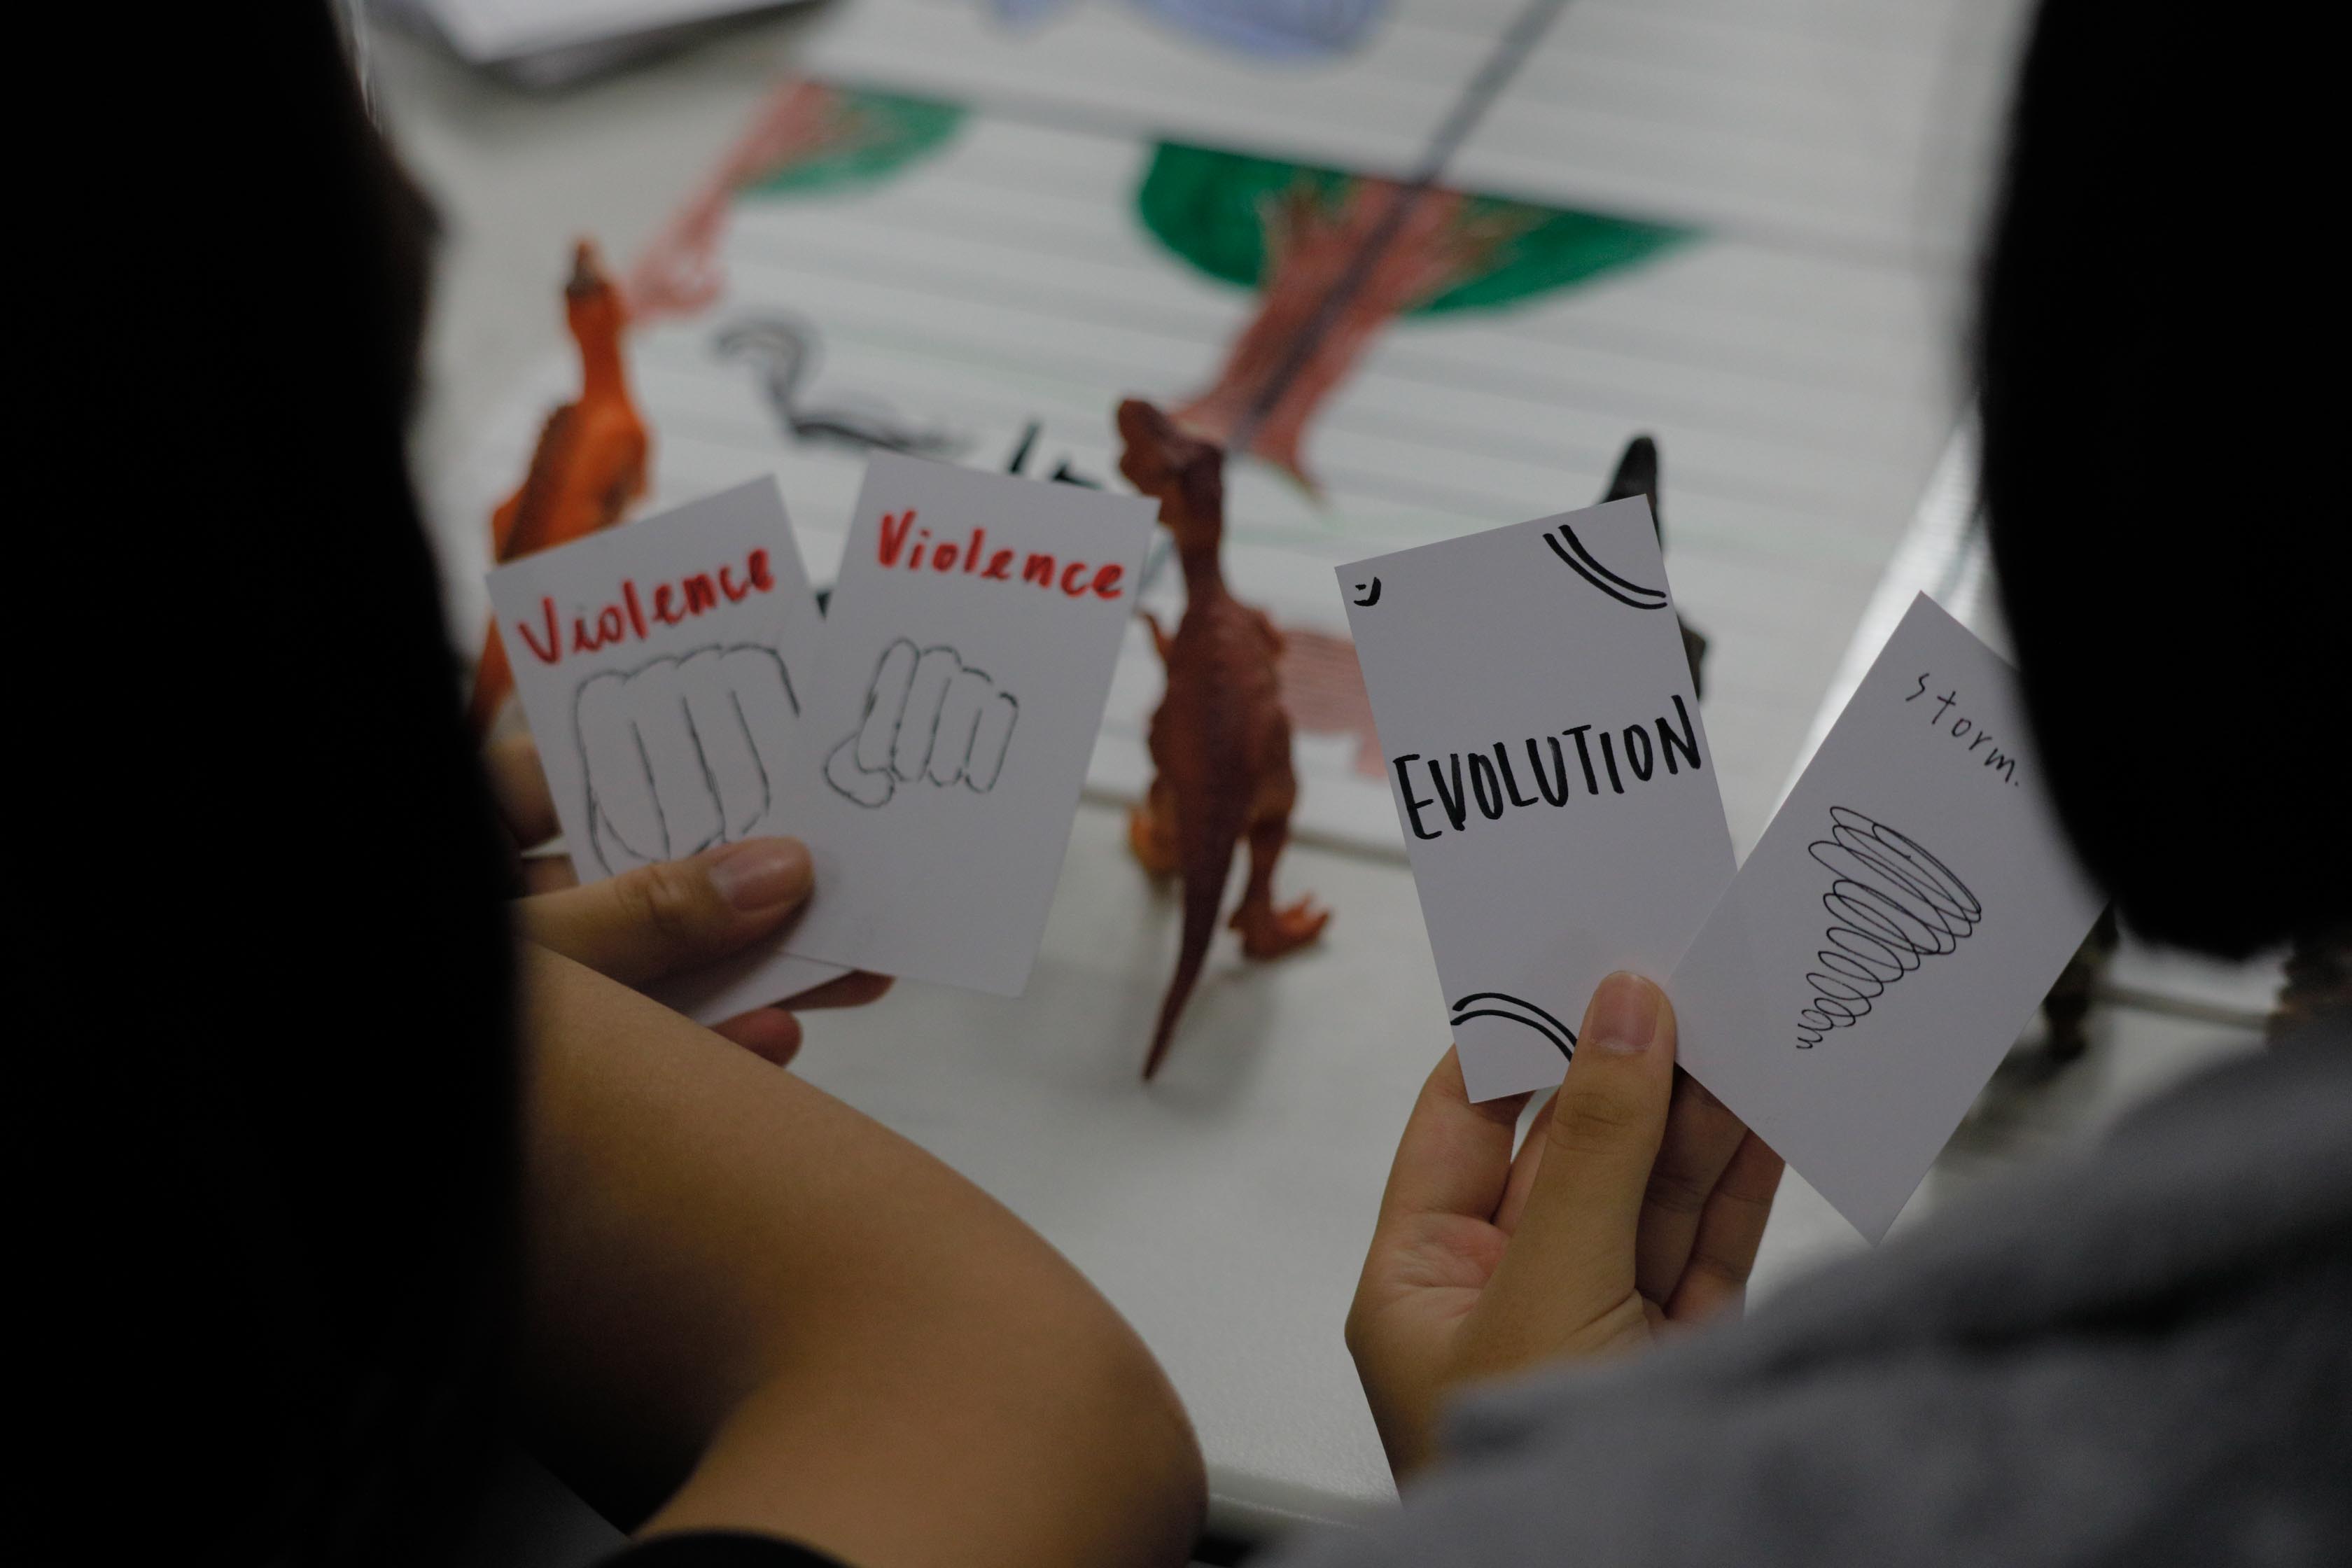 Violence
Violence
EVOLUTION
storm.